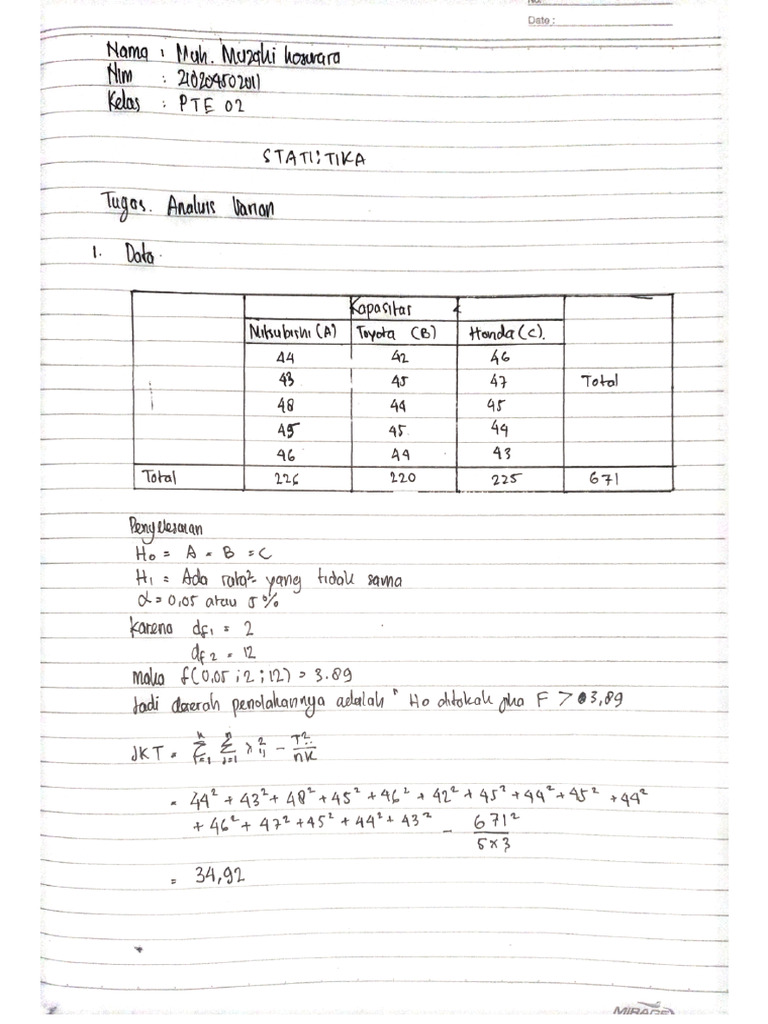 No:
Date :
Nama : Muh. Muzaki koswara
NIm : 210204502011
Kelas : PTE 02
STATISTIKA
Tugas. Analisis Varian
1. Data.
Kapasitas
Mitsubishi (A) Toyota (B) Honda (C).
44 42 46
43 45 47 Total
48 44 45
45 45 44
46 44 43
Total 226 220 225 671
Penyelesaian
H0 = A = B = C
H1 = Ada rata² yang tidak sama
α = 0,05 atau 5%
karena df1 = 2
df2 = 12
maka f(0,05 ; 2 ; 12) = 3.89
Jadi daerah penolakannya adalah " Ho ditolak jika F > 3,89
JKT =
= 44² + 43² + 48² + 45² + 46² + 42² + 45² + 44² + 45² + 44²
+ 46² + 47² + 45² + 44² + 43² - 671² / 5 x 3
= 34,92
MIRAGE